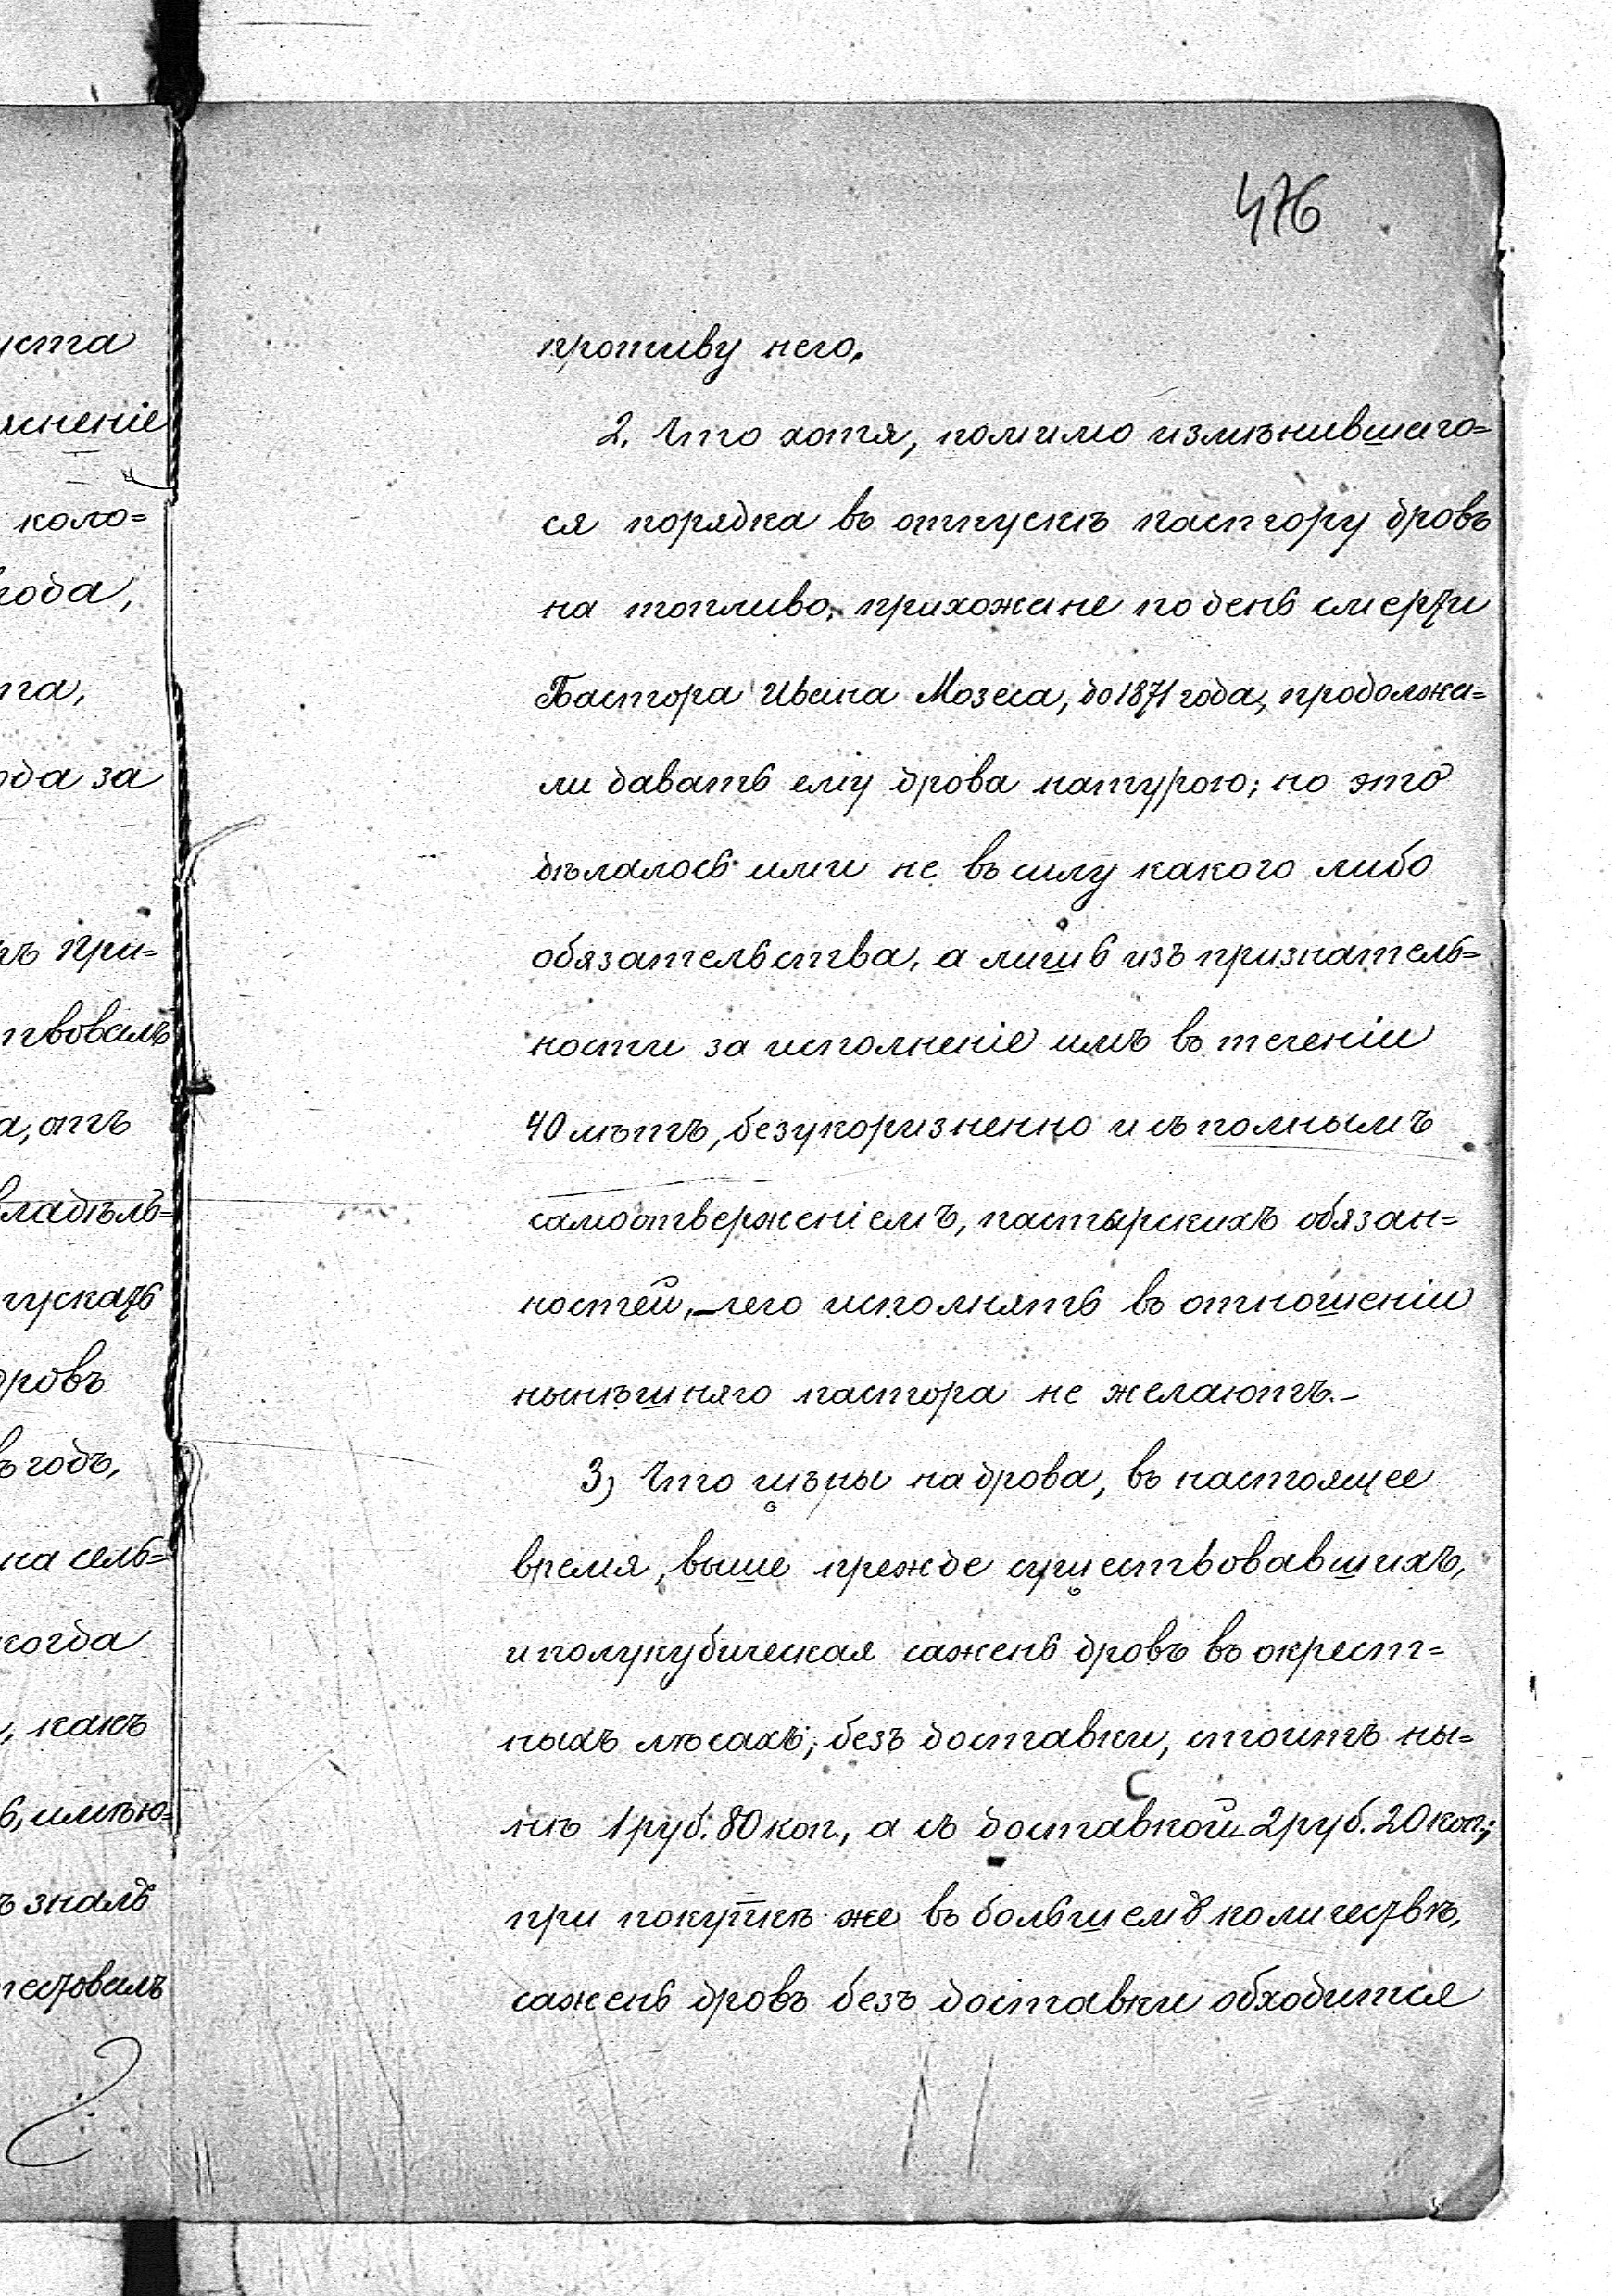 476
противу него.
2. Что хотя, помимо измѣнившаго=
ся порядка въ отпускѣ пастору дровъ
на топливо, прихожане по день смерти
Пастора Ивана Мозеса, до 1871 года, продолжа=
ли давать ему дрова натурою; но это
дѣлалось ими не въ силу какого либо
обязательства, а лишь изъ признатель=
ности за исполненіе имъ въ теченіи
40 лѣтъ, безукоризненно и съ полнымъ
самоотверженіемъ, пастырскихъ обязан=
ностей,—чего исполнять въ отношеніи
нынѣшняго пастора не желаютъ.—
3) Что цѣны на дрова, въ настоящее
время, выше прежде существовавшихъ,
и полукубическая сажень дровъ въ окрест=
ныхъ лѣсахъ, безъ доставки, стоитъ ны=
нѣ 1 руб. 80 коп., а съ доставкой 2 руб. 20 коп.;
при покупкѣ же въ большемъ количествѣ,
сажень дровъ безъ доставки обходится
уста
ясненіе
коло=
года,
та,
ода за
при=
твовалъ
а, отъ
владѣль=
пускать
дровъ
въ годъ,
на сель=
когда
, какъ
ь, имѣю=
ъ зналъ
тестовалъ